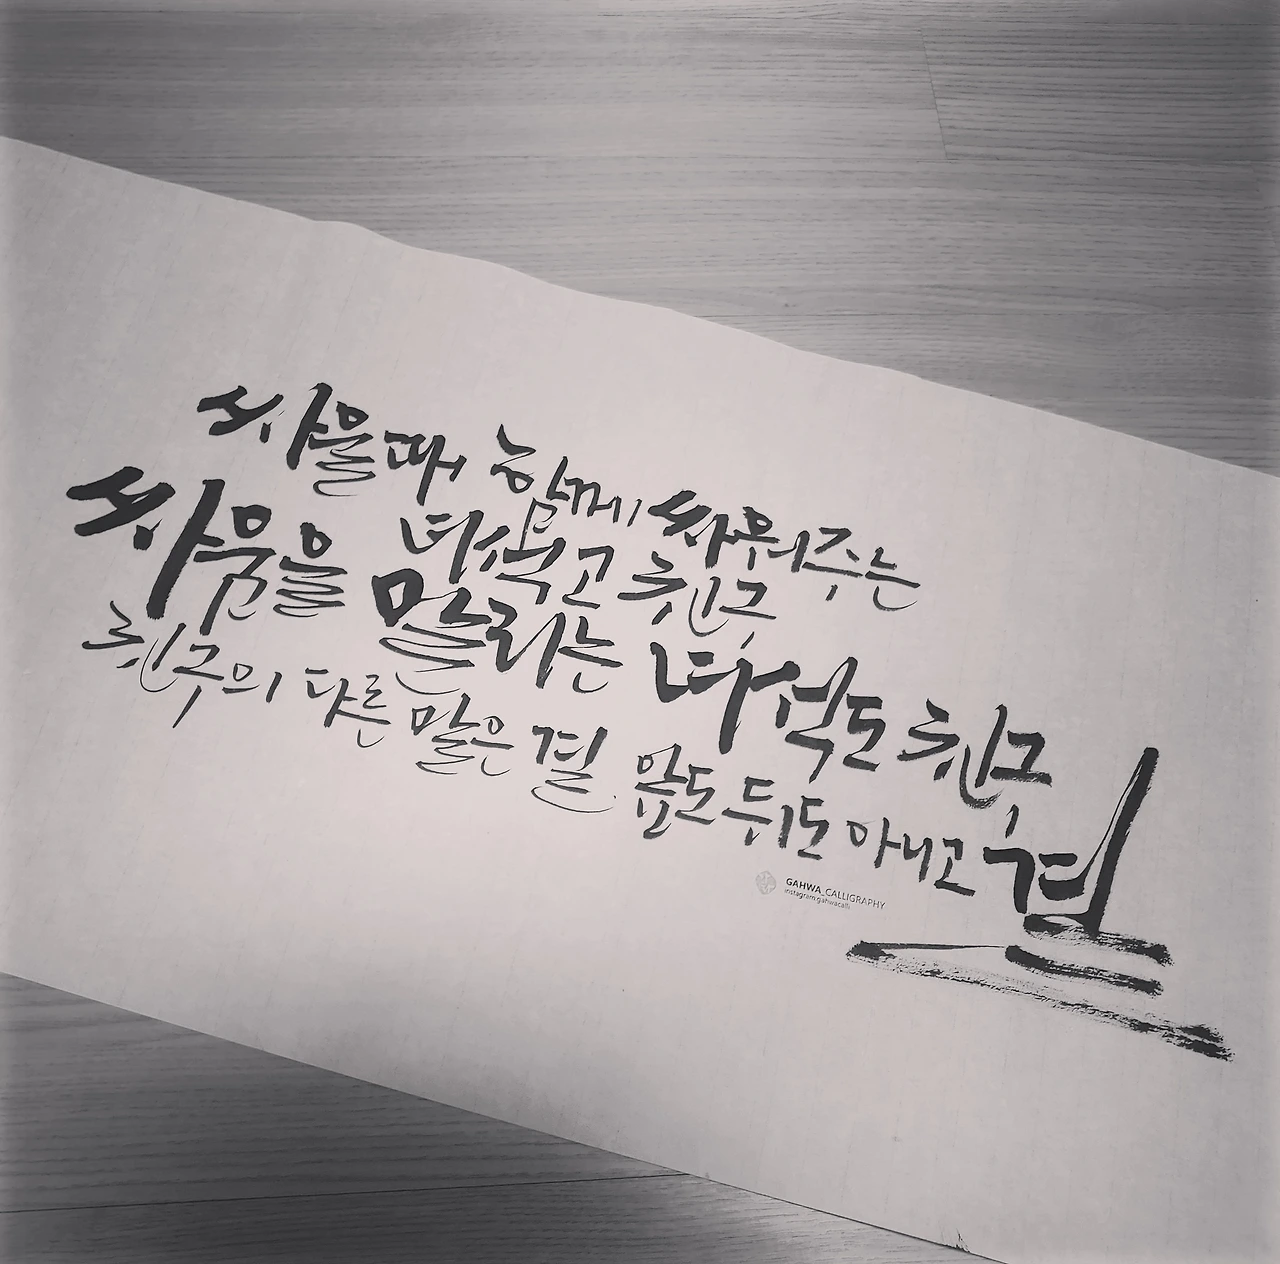 싸울때 함께 싸워주는
녀석고 친구
싸움을 말리는 녀석도 친구
친구의 다른 말은 곁 앞도 뒤도 아니고 곁
GAHWA_CALLIGRAPHY
instagram.gahwacalli